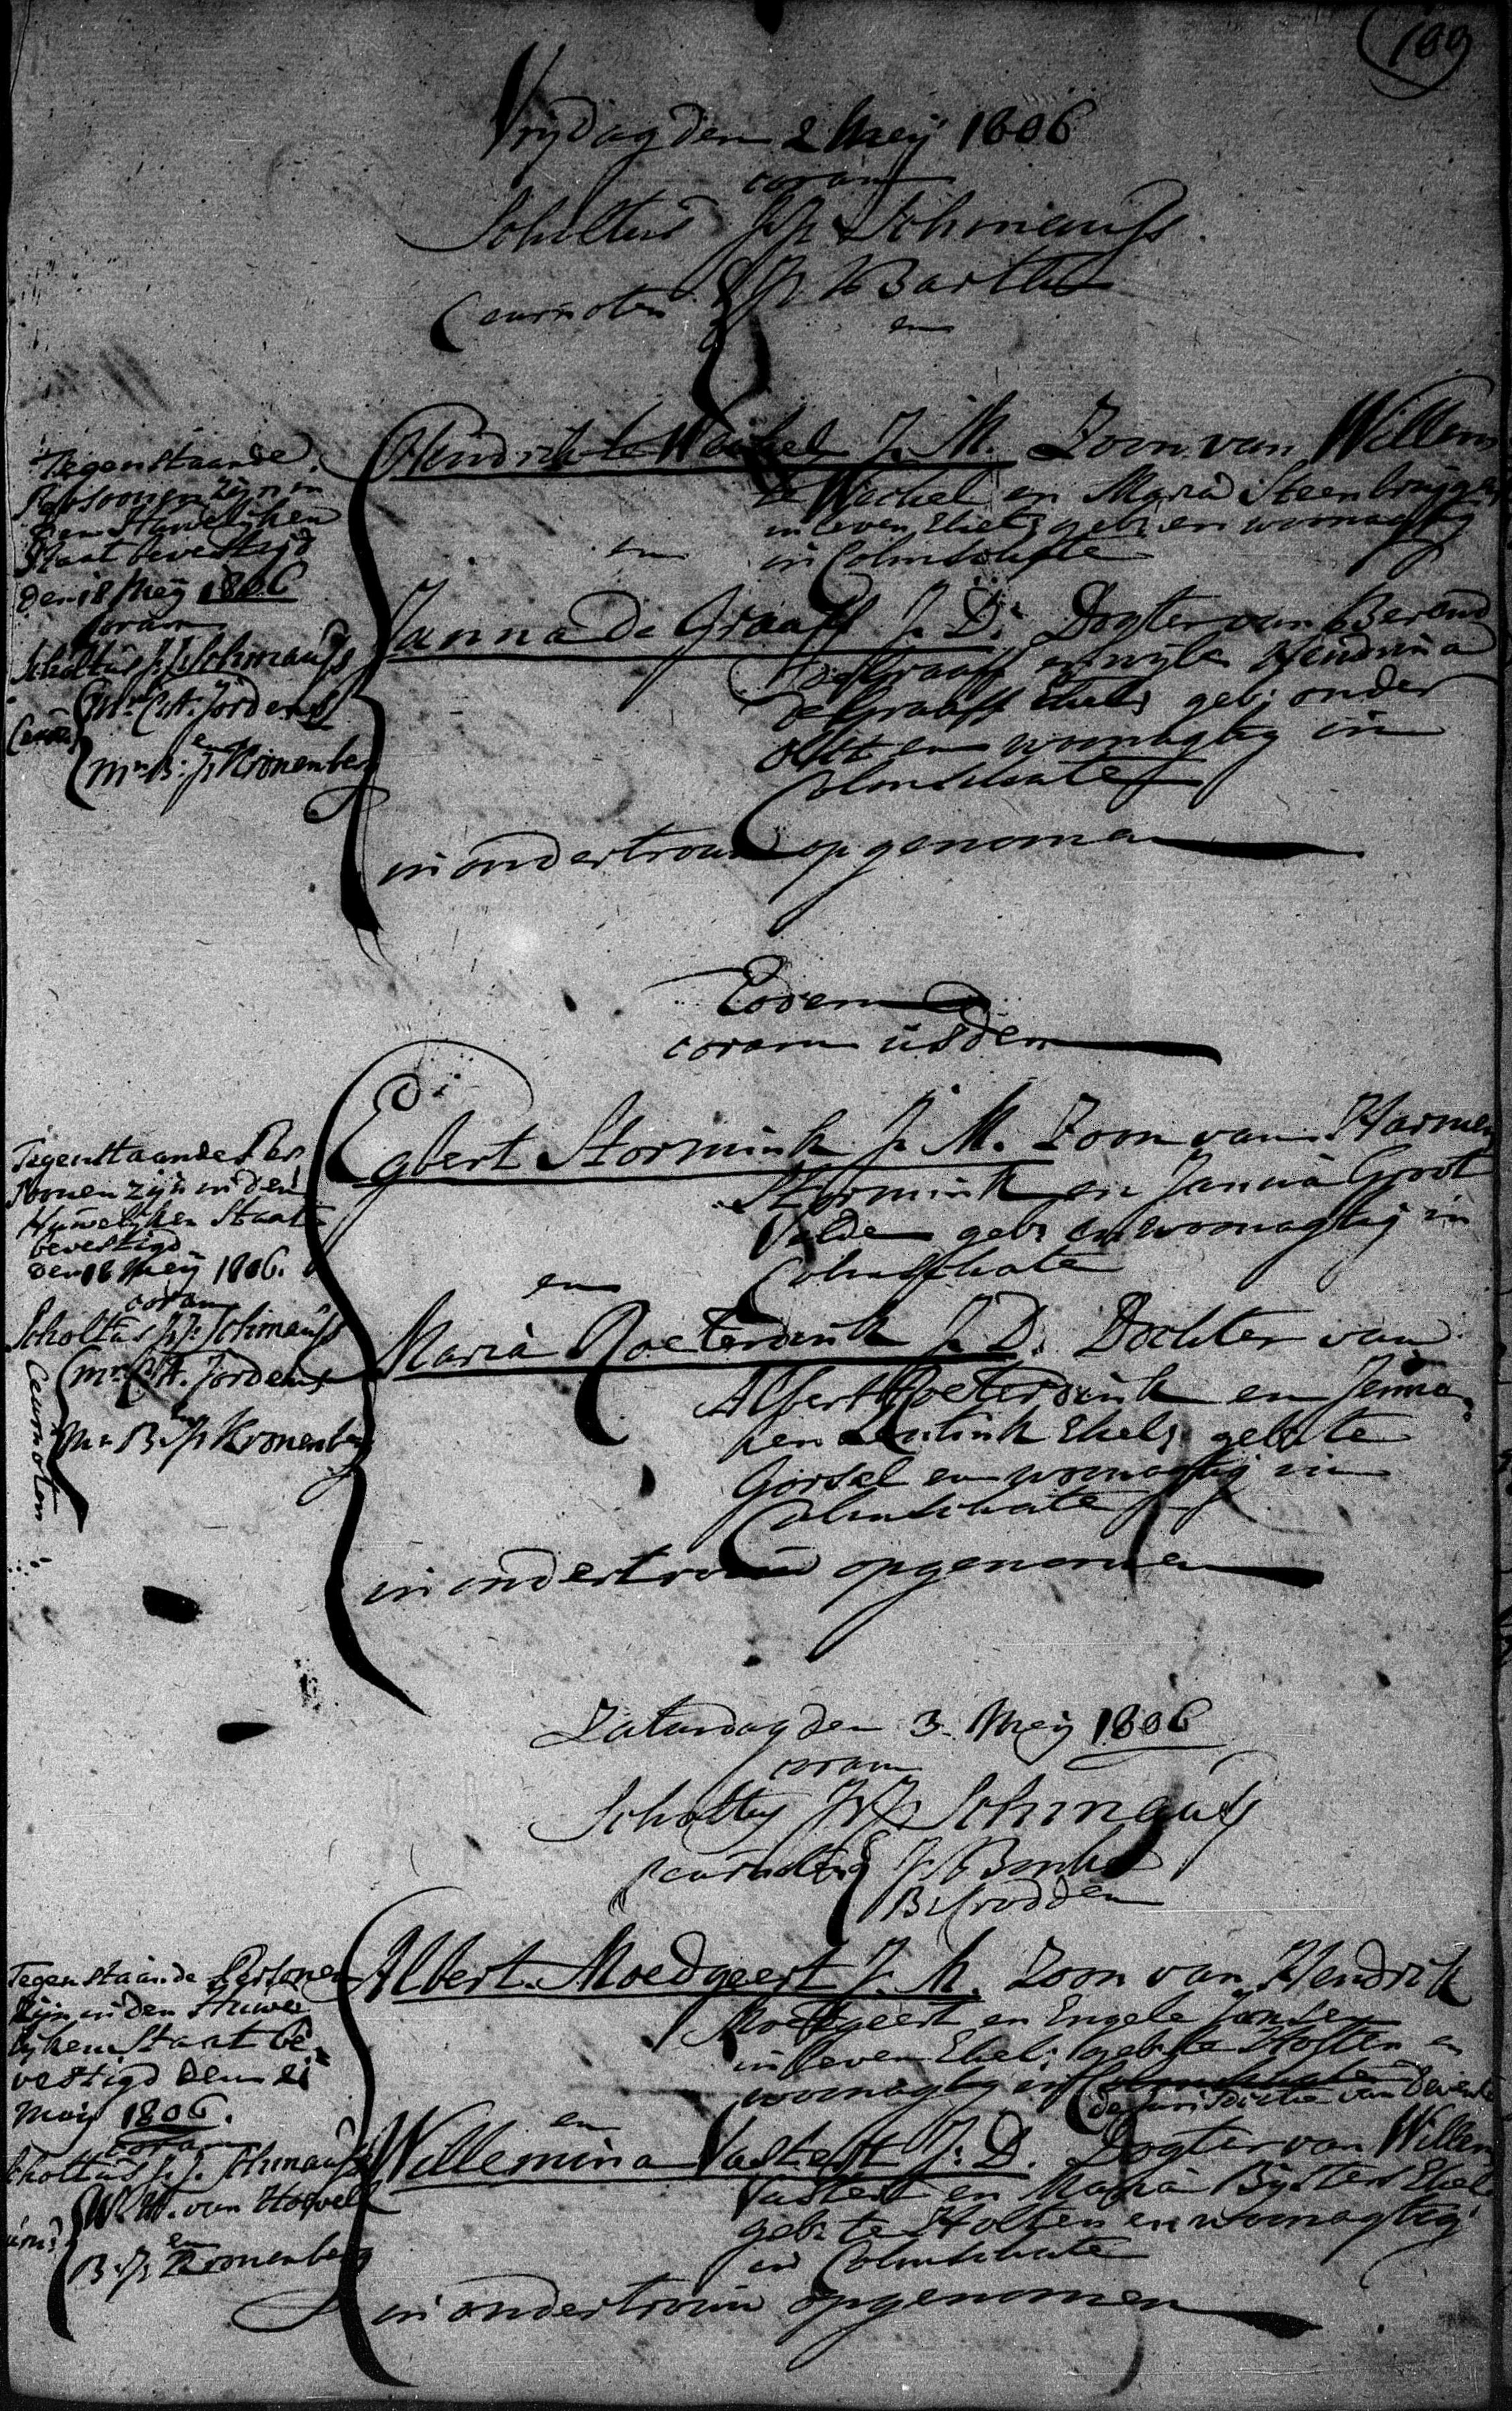 109
Vrijdag den 2 Meij 1806
coram
Scholtus J: J: Schmauss
Ceurnoten J: H Barthe
en
Tegenstaande
Persoonen zijn in
den Huwelijken
Staat bevestigd
den 18 Meij 1806
Coram
Scholtus J: J: Schmauss
Ceurn: Mr. C: A: Jordens
en
Mr. B: J: Kronenberg
Hendrik te Wechel J: M. Zoon van Willem
te Wechel en Maria Steenbruggen
in leven Ehel: geb: en woonagtig
in Colmschate
en
Janna de Graaff J: D: Dogter van Berend
de Graaff en wijle Hendrina
de Graaff Ehel: geb: onder
Olst en woonagtig in
Colmschate
in ondertrouw opgenomen
Eodem
coram iisdem
Tegenstaande Per
soonen zijn in den
Huwelijken Staat
bevestigd
den 18 Meij 1806.
coram
Scholtus J: J: Schmauss
Ceurnoten
Mr. C: A. Jordens
en
Mr. B: J: Kronenberg
Egbert Stormink J: M. Zoon van Harmen
Stormink en Janna Groot
Velde geb: en woonagtig in
Colmschate
en
Maria Roeterdink J: D. Dochter van
Albert Roeterdink en Jenne
ken Lentink Ehel: geb: te
Gorssel en woonagtig in
Colmschate
in ondertrouw opgenomen
Zaturdag den 3 Meij 1806
coram
Scholtus J: J: Schmauss
ceurnoten J: H Bonke
B: Crodden
Tegenstaande Personen
zijn in den Huwe
lijken Staat be
vestigd den 21
Meij 1806.
coram
Scholtus J: J. Schmauss
W: W. van Hoevell
en
B: J: Kronenberg
Albert Moedgeert J: M. Zoon van Hendrik
Moedgeert en Engele Jansen
in leven Ehel: geb: te Holten en
woonagtig in Colmschate
de Jurisdictie van Deventer
en
Willemina Vastert J: D. Dogter van Willem
Vastert en Maria Bijsters Ehel:
geb: te Holten en woonagtig
in Colmschate
in ondertrouw opgenomen